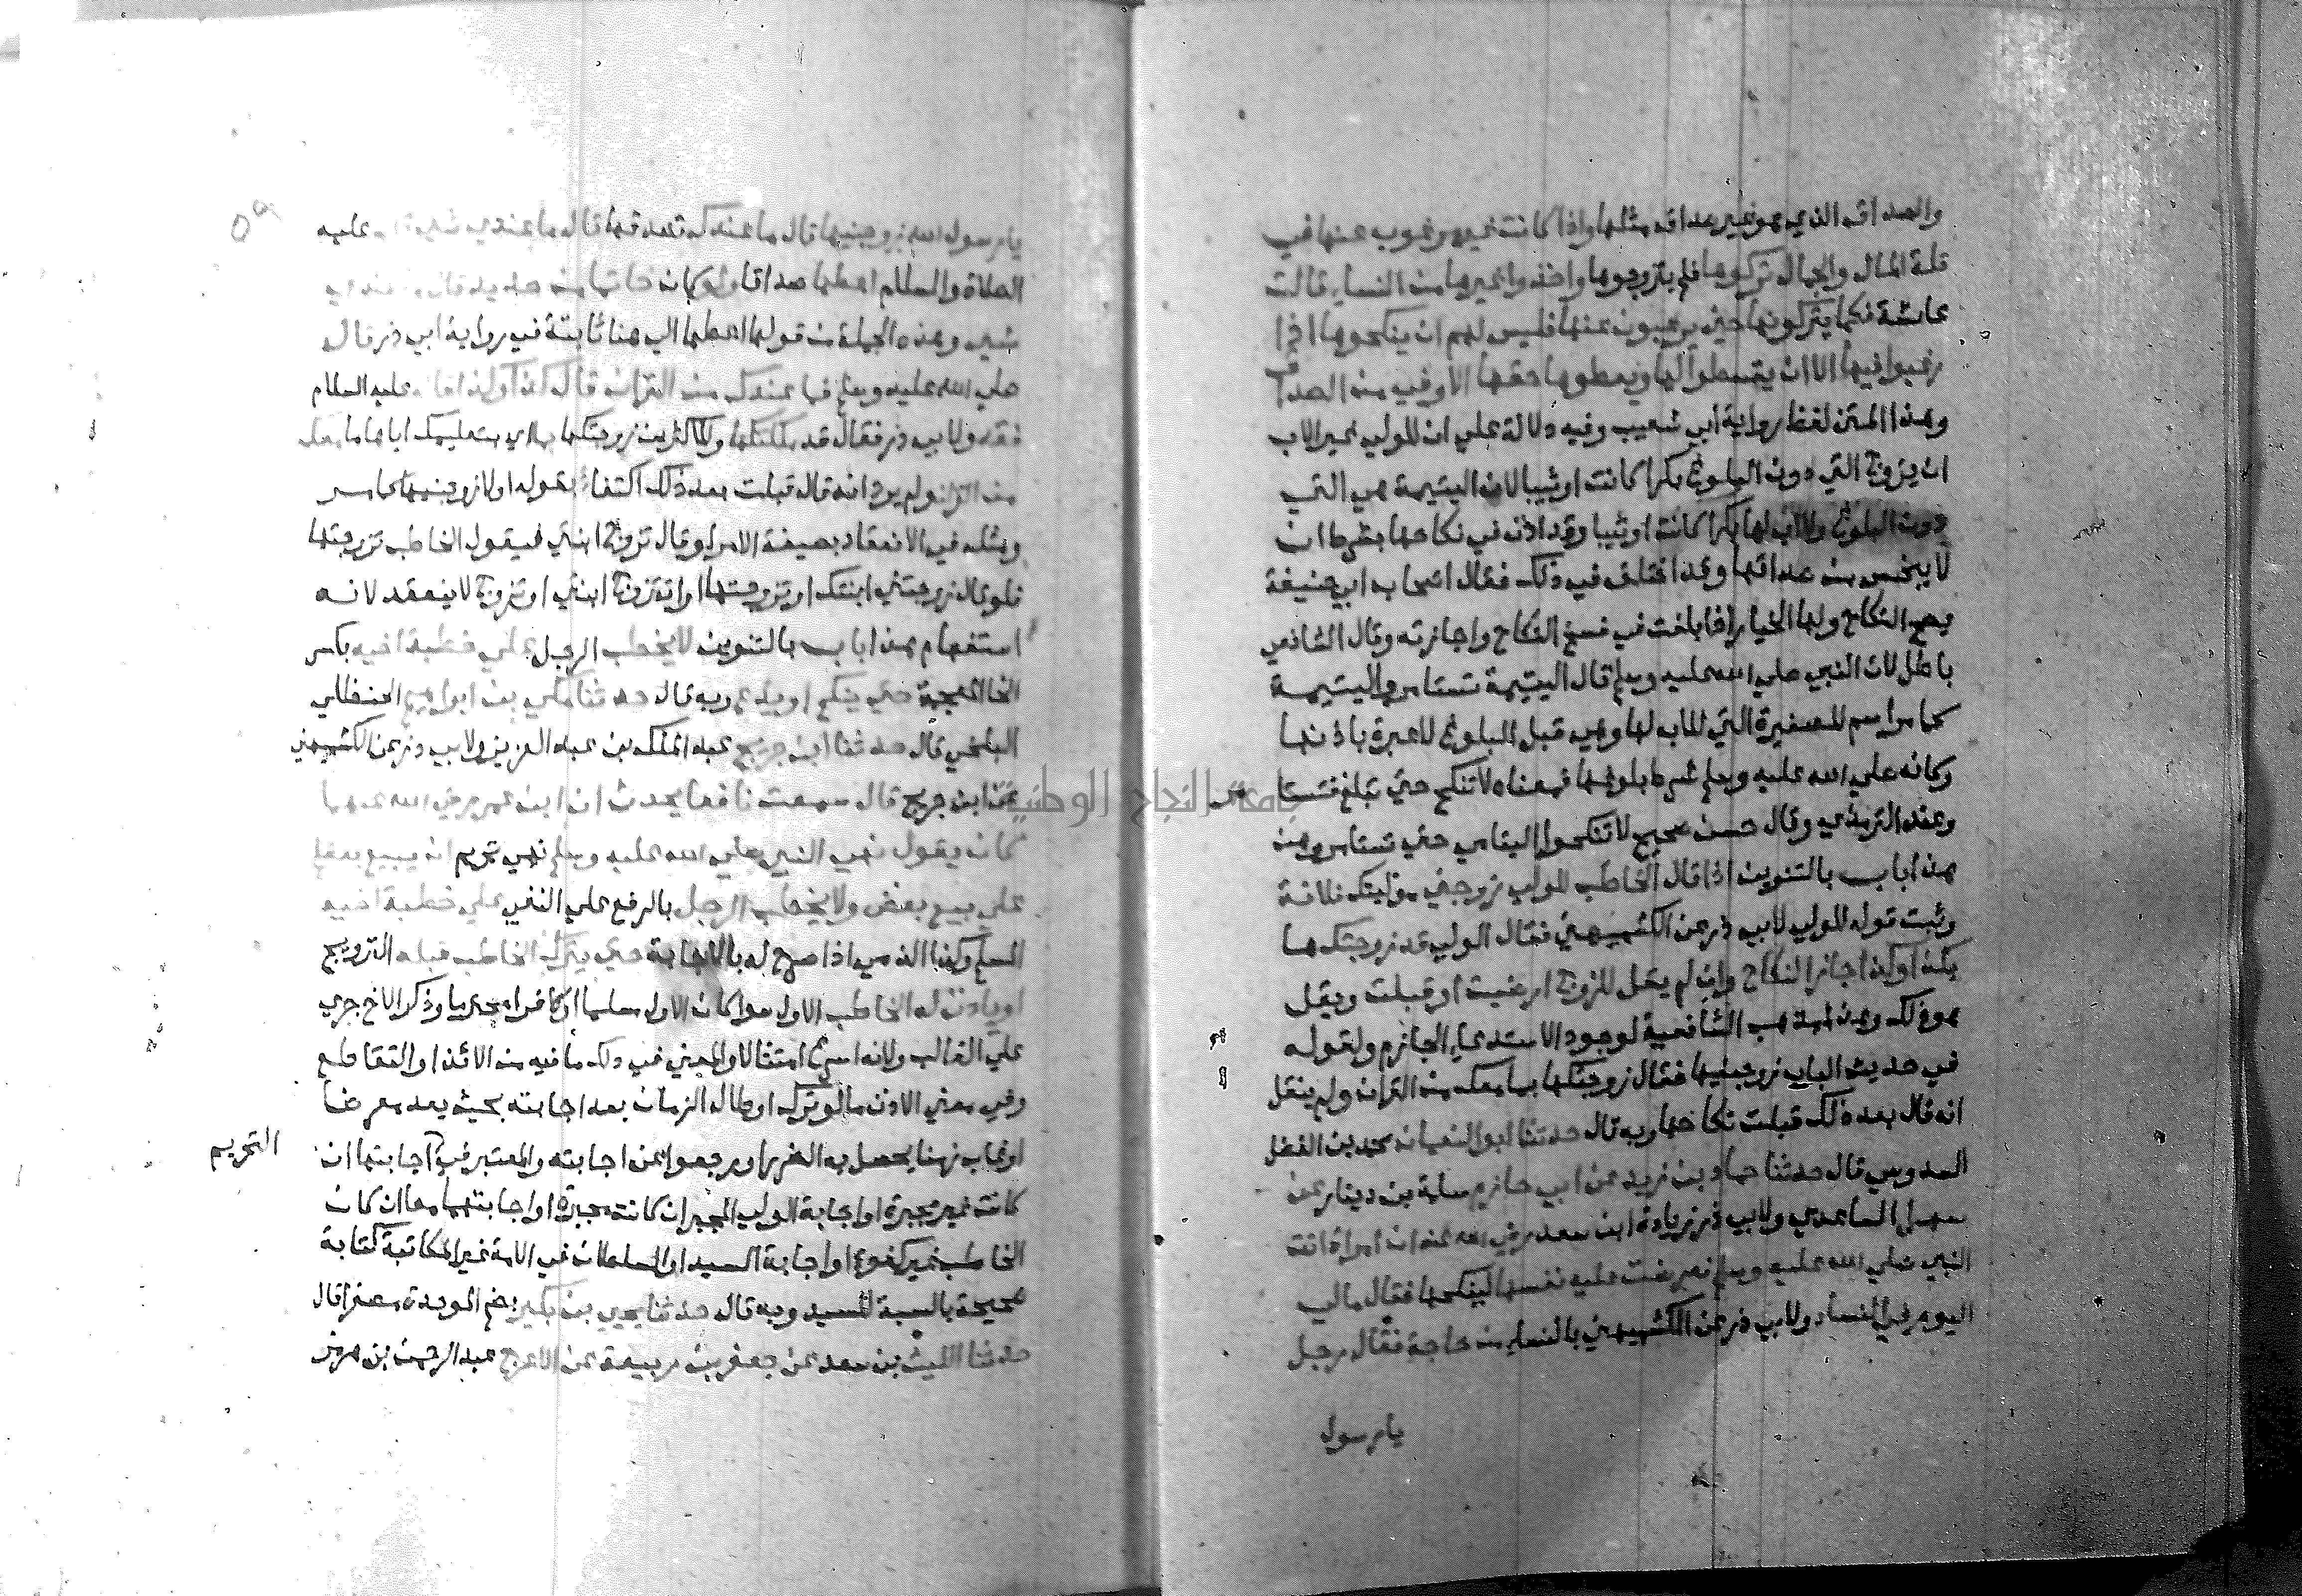 والصداق الذي هو غير صداق مثلها واذا كانت غير مرغوب عنها في
قلة المال والجمال تركوها فلم يتزوجوها واخذوا غيرها من النساء قالت
عائشة فكما يتركونها حين يرغبون عنها فليس لهم ان ينكحوها اذا
رغبوا فيها الا ان يقسطوا لها ويعطوها حقها الاوفي من الصداق
وهذا المتن لفظ رواية ابي شعيب وفيه دلالة علي ان للولي غير الاب
ان يزوج التي دون البلوغ بكرا كانت او ثيبا لان اليتيمة هي التي
دون البلوغ ولا اب لها بكرا كانت او ثيبا وقد اذن في نكاحها بشرط ان
لا يبخس من صداقها وقد اختلف في ذلك فقال اصحاب ابي حنيفة
يصح النكاح ولها الخيار اذا بلغت في فسخ النكاح واجازته وقال الشافعي
باطل لان النبي صلي الله عليه وسلم قال اليتيمة تستامر واليتيمة
كما مر اسم للصغيرة التي لا اب لها وهي قبل البلوغ لا عبرة باذنها
وكانه صلي الله عليه وسلم شرط بلوغها فمعناه لا تنكح حتي تبلغ فتستامر
وعند الترمذي وقال حسن صحيح لا تنكحوا اليتامي حتي تستامروهن
هذا باب بالتنوين اذا قال الخاطب للولي زوجني وليتك فلانة
وثبت قوله للولي لابي ذر عن الكشميهني فقال الولي قد زوجتكها
بكذا وكذا جاز النكاح وان لم يقل للزوج ارضيت او قبلت ويقل
هو ذلك وهذا مذهب الشافعية لوجود الاستدعاء الجازم ولقوله
في حديث الباب زوجنيها فقال زوجتكها بما معك من القران ولم ينقل
انه قال بعد ذلك قبلت نكاحها وبه قال حدثنا ابو النعمان محمد بن الفضل
السدوسي قال حدثنا حماد بن زيد عن ابي حازم سلمة بن دينار عن
سهل الساعدي ولابي ذر زيادة ابن سعد رضي الله عنه ان امراة اتت
النبي صلي الله عليه وسلم فعرضت عليه نفسها لينكحها فقال مالي
اليوم في النساء ولابي ذر عن الكشميهني بالنساء من حاجة فقال رجل
يا رسول
يا رسول الله زوجنيها قال ما عندك تصدقها قال ما عندي شي عليه
الصلاة والسلام اعطها صداقا ولو كان خاتما من حديد قال ما عندي
شي وهذه الجملة من قوله اعطها الي هنا ثابتة في رواية ابي ذر قال
صلي الله عليه وسلم فما عندك من القران قال كذا وكذا قال عليه السلام
فقد ولابي ذر فقال قد ملكتكها وللاكثرين زوجتكها اي بتعليمك اياها ما معك
من القران ولم يرد انه قال قبلت بعد ذلك اكتفاء بقوله اولا زوجنيها كما مر
ومثله في الانعقاد بصيغة الامر لو قال تزوج ابنتي فيقول الخاطب تزوجتها
فلو قال زوجتني ابنتك او تزوجتها او اتتزوج ابنتي او تتزوج لا ينعقد لانه
استفهام هذا باب بالتنوين لا يخطب الرجل علي خطبة اخيه بكسر
الخا المعجمة حتي ينكح او يدع وبه قال حدثنا مكي بن ابراهيم الحنظلي
البلخي قال حدثنا ابن جريج عبد الملك بن عبد العزيز ولابي ذر عن الكشميهني
عن ابن جريج قال سمعت نافعا يحدث ان ابن عمر رضي الله عنهما
كان يقول نهي النبي صلي الله عليه وسلم نهي تحريم ان يبيع بعضكم
علي بيع بعض ولا يخطب الرجل بالرفع علي النفي علي خطبة اخيه
المسلم وكذا الذمي اذا صرح له بالاجابة حتي يترك الخاطب قبله التزويج
او ياذن له الخاطب الاول سوا كان الاول مسلما او كافرا محترما وذكر الاخ جري
علي الغالب ولانه اسرع امتثالا والمعني في ذلك ما فيه من الائذا والتقاطع
وفي معني الاذن ما لو ترك او طال الزمان بعد اجابته بحيث يعد معرضا
او غاب زمنا يحصل به الضرر او رجعوا عن اجابته والمعتبر في اجابتها ان
التحريم
كانت غير مجبرة او اجابة الولي المجبر ان كانت مجبرة او اجابتهما معا ان كان
الخاطب غير كفوء او اجابة السيد او السلطان في الامة غير المكاتبة كتابة
صحيحة بالنسبة للسيد وبه قال حدثنا يحيي بن بكير بضم الموحدة مصغرا قال
حدثنا الليث بن سعد عن جعفر بن ربيعة عن الاعرج عبد الرحمن بن هرمز
جامعة النجاح الوطنية